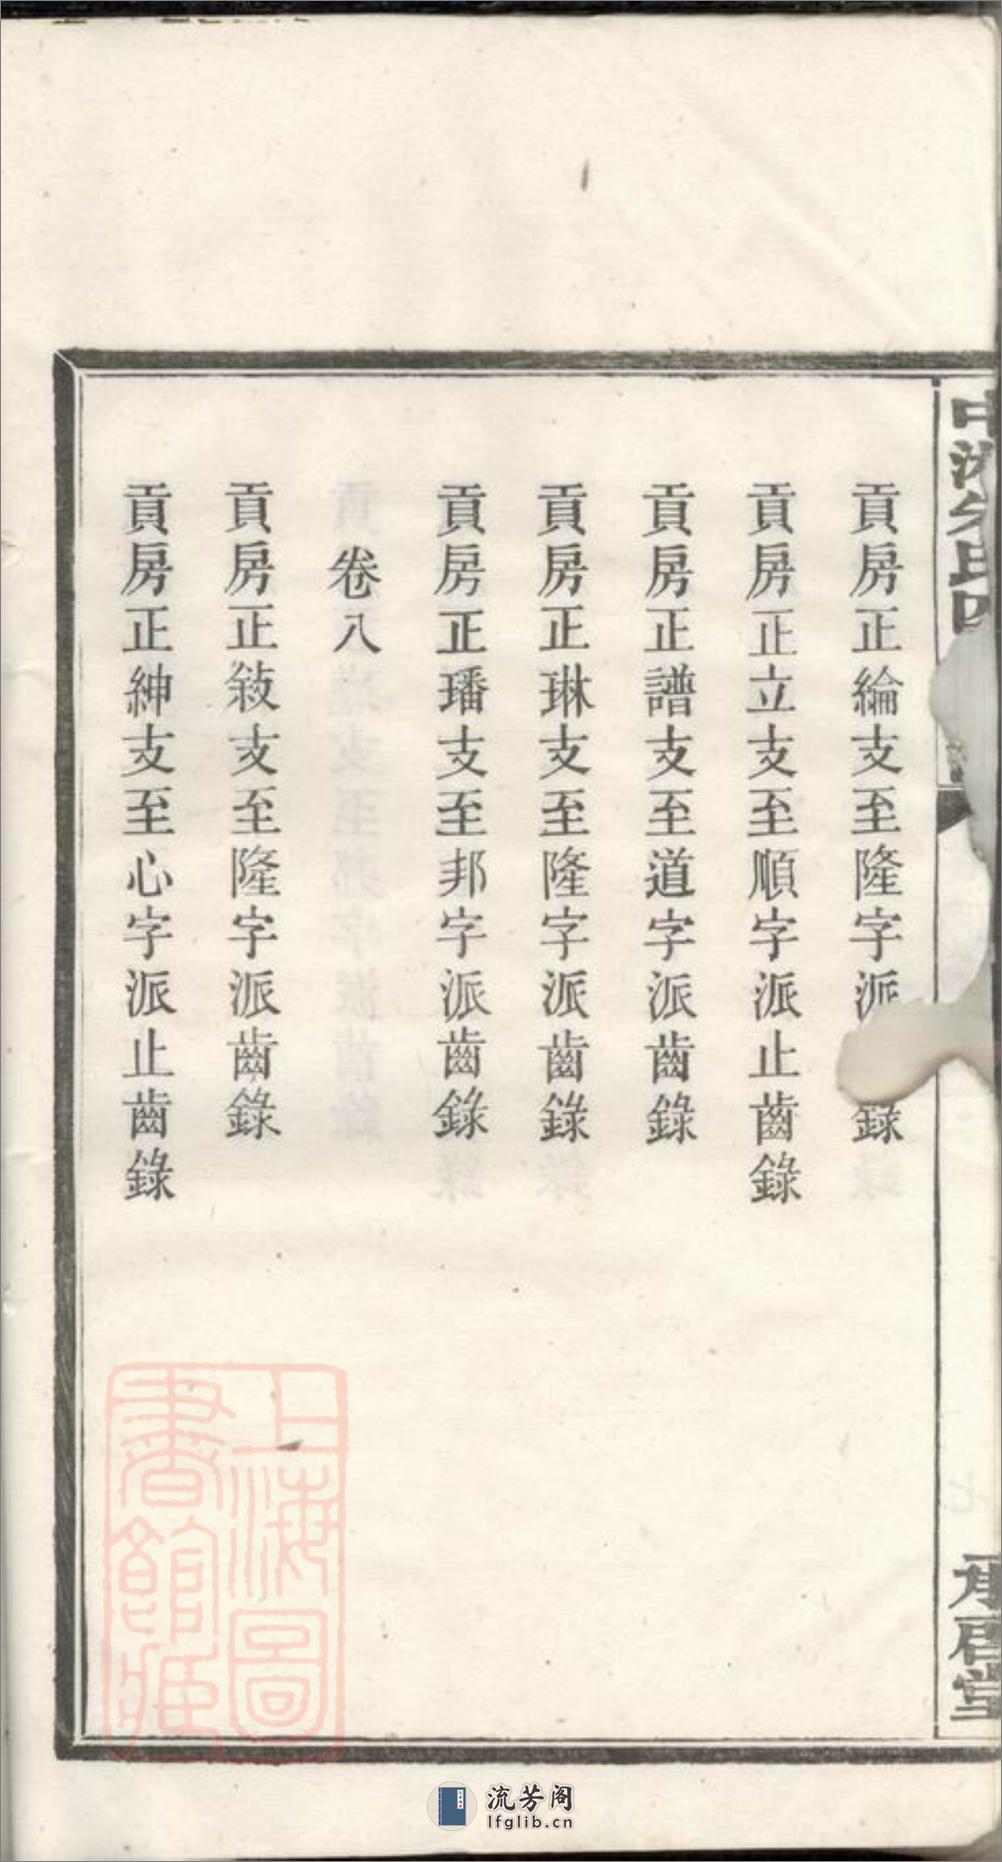 中湘朱氏四
承啓堂
貢房正綸支至隆字派錄
貢房正立支至順字派止齒錄
貢房正譜支至道字派齒錄
貢房正琳支至隆字派齒錄
貢房正璠支至邦字派齒錄
卷八
貢房正敍支至隆字派齒錄
貢房正紳支至心字派止齒錄
上海圖書館藏
流芳阁
lfglib.cn